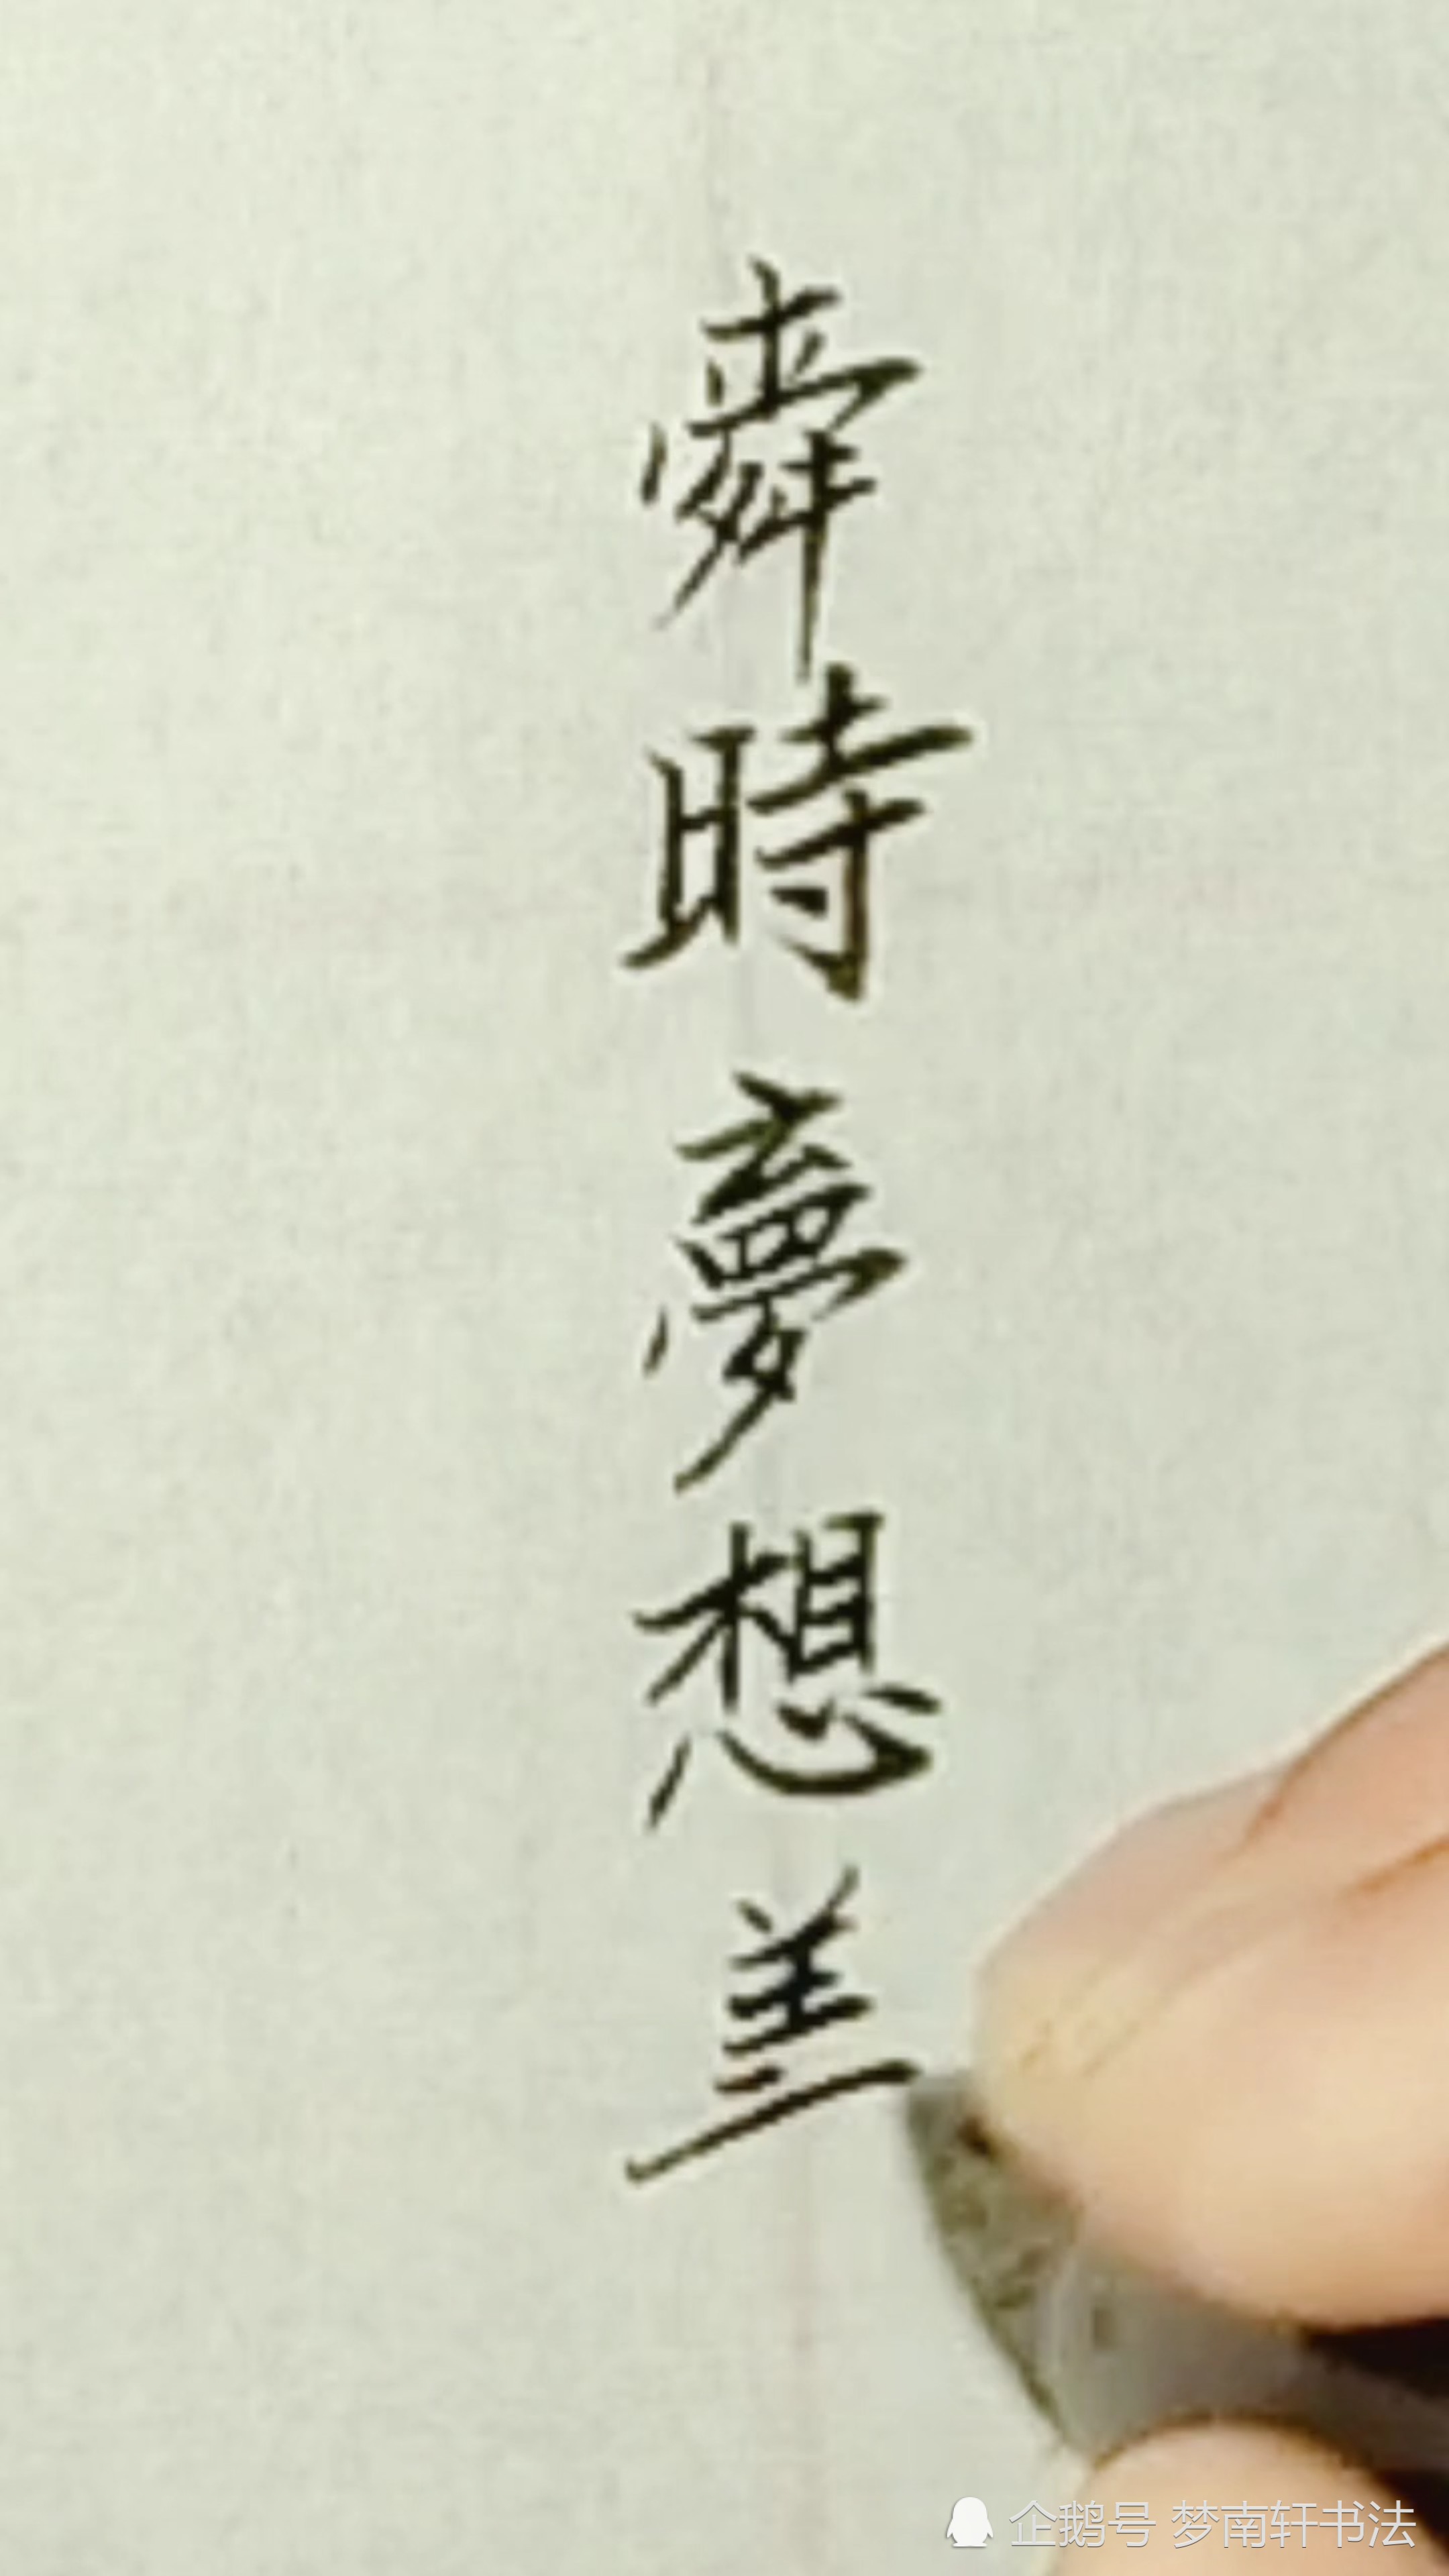 時夢想
企鹅号 梦南轩书法